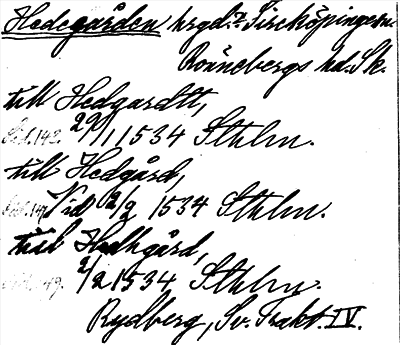 Hedegården hrgd. i Sireköpinge sn.
Rönnebergs hd. Sk.
till Hedgardtt,
Sid. 142. 29/1 1534 Sthlm.
till Hedgård,
Sid. 147. Vid 2/2 1534 Sthlm.
till Hedhgård,
149. 2/2 1534, Sthlm.
Rydberg, Sv. Trakt. IV.